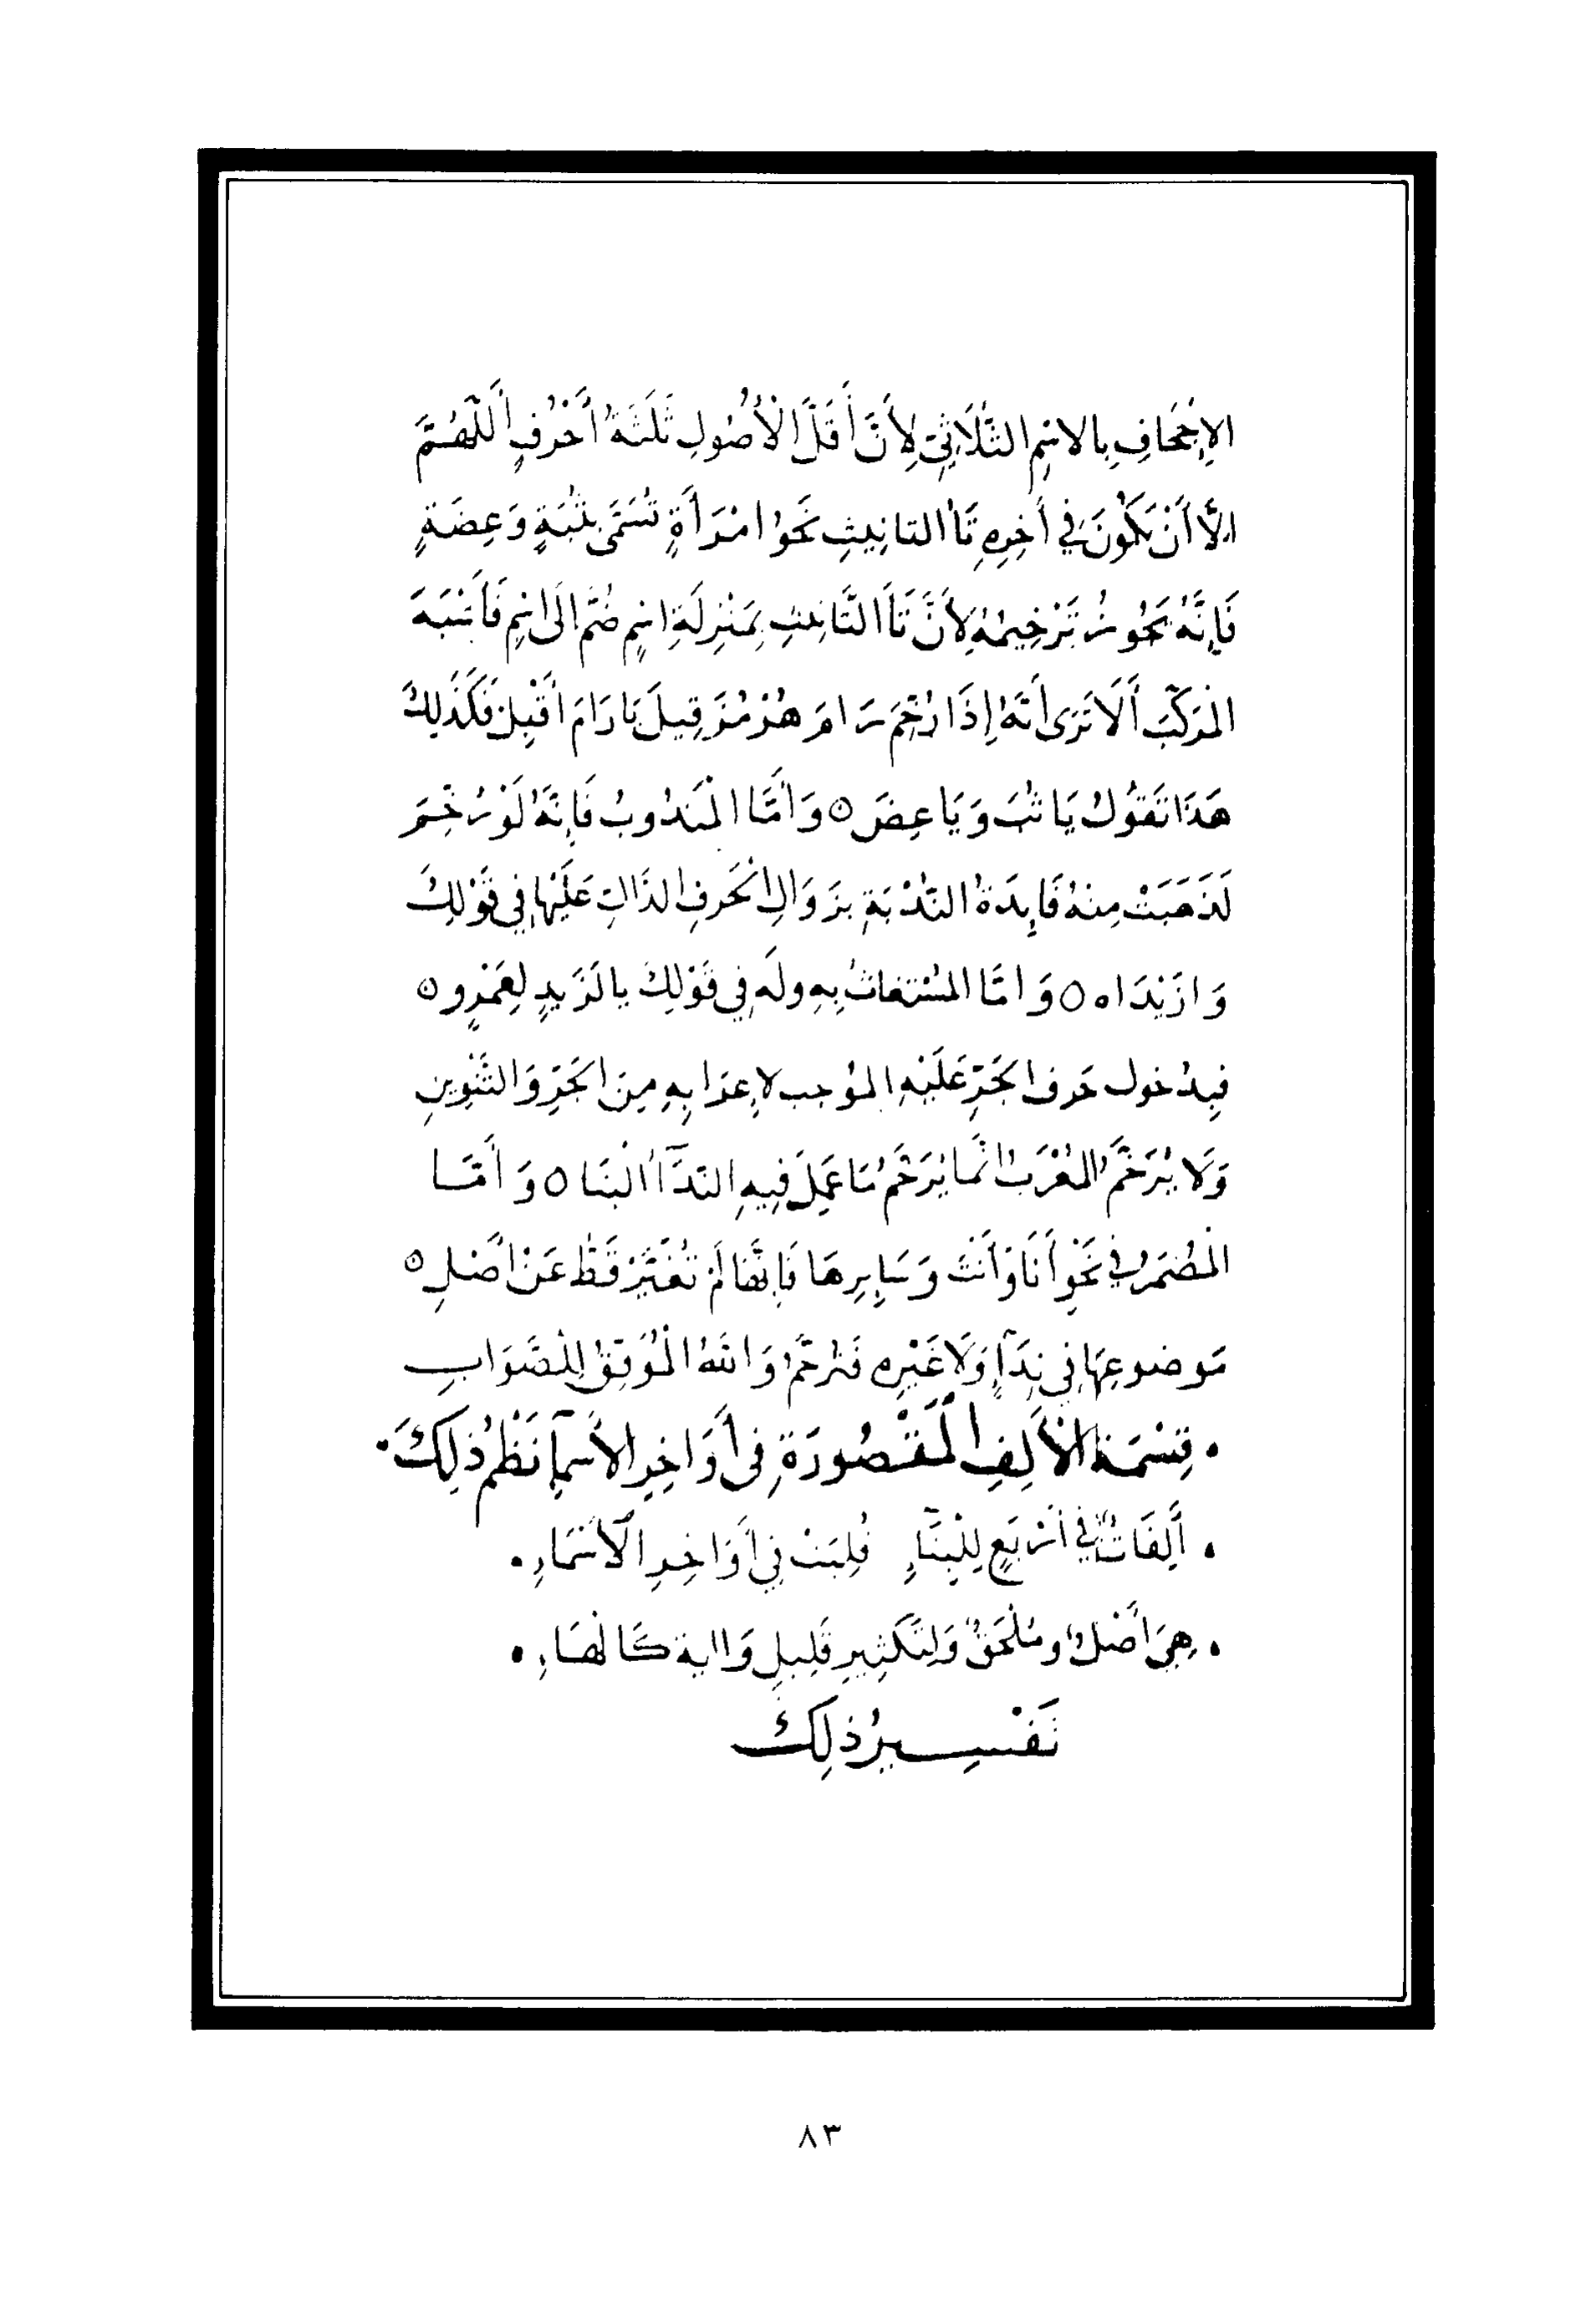 الإِجْحَافِ بِالاسْمِ الثُّلَاثِيِّ لِأَنَّ أَقَلَّ الْأُصُولِ ثَلَثَةُ أَحْرُفٍ أَللَّهُمَّ
الَّا أَنْ يَكُونَ فِي أَخِرِهِ تَاُ التانِيثِ نَحْوُ امْرَأَةٍ تُسَمَّى بِثُبَةٍ وَعِضَةٍ
فَإِنَّهُ يَجُوزُ تَرْخِيمُهُ لِأَنَّ تَاَ التَّانِيثِ بِمَنْزِلَةِ اسْمٍ ضُمَّ الَى اسْمٍ فَأَشْبَهَ
الْمُرَكَّبَ أَلَا تَرَى أَنَّهُ إِذَا رُخِّمَ رَامَ هُرْمُزَ قِيلَ يَا رَامَ أَقْبِلْ فَكَذَلِكَ
هَذَا تَقُولُ يَا ثُبَ وَيَا عِضَ ۝ وَأَمَّا الْمَنْدُوبُ فَإِنَّهُ لَوْ رُخِّمَ
لَذَهَبَتْ مِنْهُ فَايِدَةُ النُّدْبَةِ بِزَوَالِ الْحَرفِ الدَّالِّ عَلَيْهَا فِي قَوْلِكَ
وَازَيْدَاه ۝ وَامَّا المُسْتَغَاثُ بِهِ ولَهُ فِي قَوْلِكَ يا لَزَيدٍ لِعَمْرٍو ۝
فَبِدُخول حَرف الجَرِّ عَلَيْهِ المُوجب لإِعرَابِهِ مِنَ الجَرِّ وَالتَّنْوِينِ
وَلَا يُرَخَّمُ المُعْرَبُ انَّمَا يُرَخَّمُ مَا عَمِلَ فِيهِ النِّدَآُ الْبِنَا ۝ وَأَمَّا
الْمُضْمَرُ فِي نَحْوِ أَنَا وَأَنْتَ وَسَايِرِهَا فَإِنَّهَا لَمْ تُغَيَّرْ قَطُّ عَنْ أَصْلِ ۝
مَوضوعِهَا فِي نِدَآءٍ وَلَا غَيْرِهِ فَتُرخَّمُ وَاللهُ الْمُوَفِّقُ لِلصَّوَابِ
• قِسْمَةُ الْأَلِفِ الْمَقْصُورَةِ فِي أَوَاخِرِ الأَسْمَآءِ نَظْمُ ذَلِكَ •
• أَلِفَاتٌ فِي أَرْبَعٍ لِلْبِنَآءِ قُلِبَتْ فِي أَوَاخِرِ الْأَسْمَاءِ •
• هِيَ أَصْلٌ ومُلْحَقٌ وَلِتَكْثِيرِ قَلِيلٍ وَااية كَالْهَاءِ •
تَفْسِيرُ ذَلِكَ
٨٣